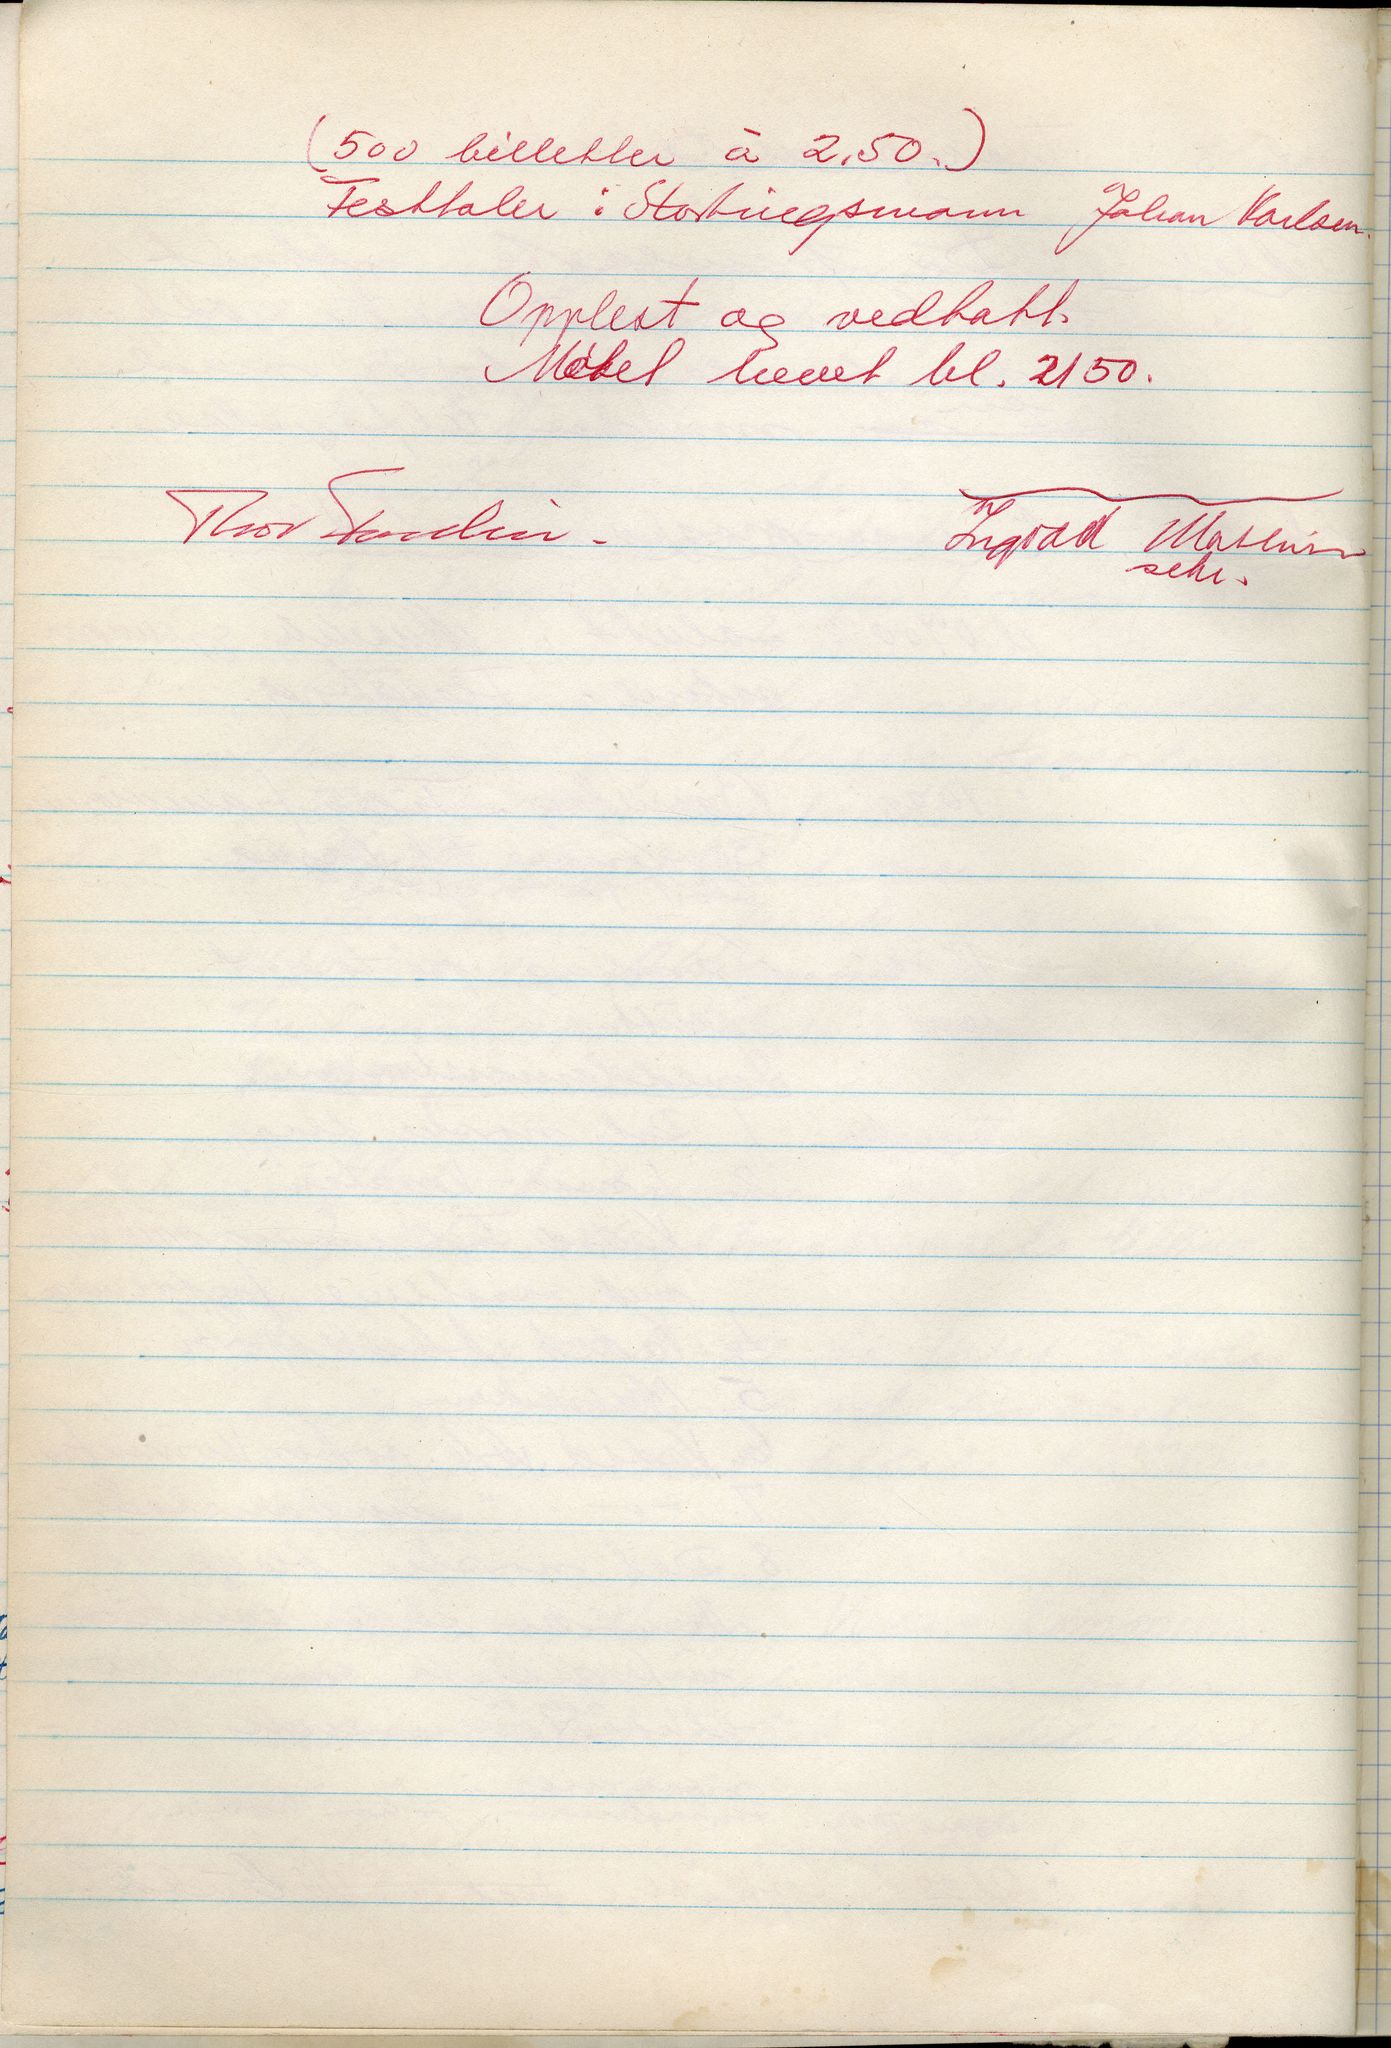 (500 billetter à 2.50.)
Festtaler: Stortingsmann Johan Karlsen.
Opplest og vedtatt.
Møtet hevet kl. 2150.
Thor Sandlin.
Ingvald Mathisen
sekr.